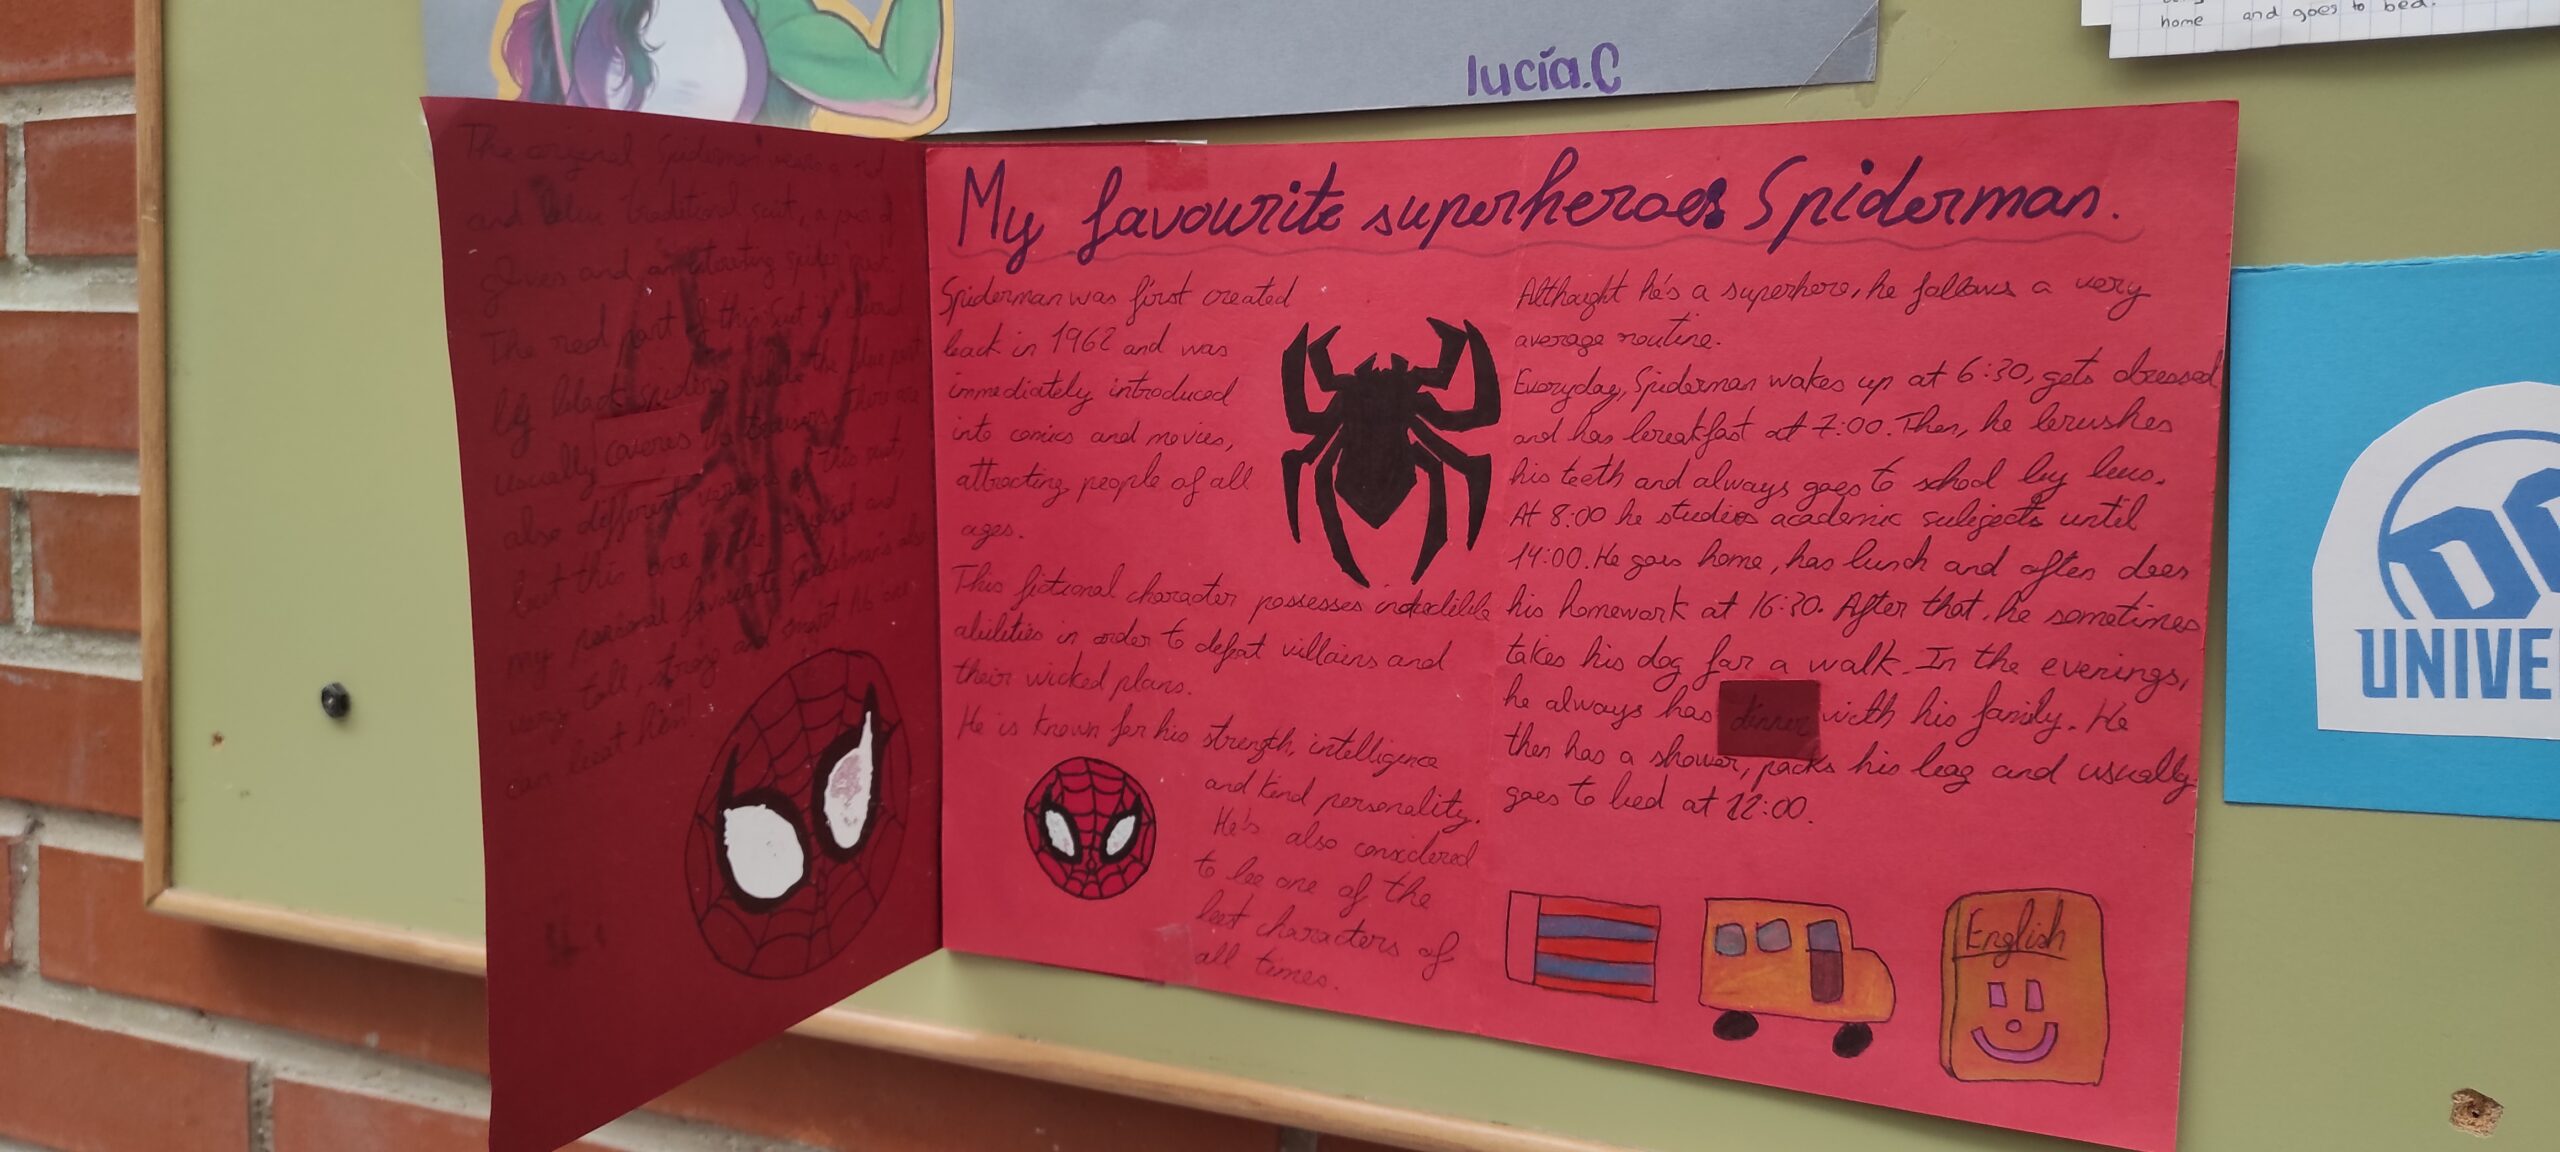 home and goes to bed.
lucía.C
The original Spiderman wears a red
and blue traditional suit, a pair of
gloves and an interesting spider
The red part of this suit is
by black spiders while the blue part
usually coveres the trousers. There are
also different versions of this suit,
but this one is the and
my personal favourite Spiderman is also
very tall, strong and smart. No one
can beat him!
My favourite superheroes Spiderman.
Spiderman was first created
back in 1962 and was
immediately introduced
into comics and movies,
attracting people of all
ages.
This fictional character possesses incredible
abilities in order to defeat villains and
their wicked plans.
He is known for his strength, intelligence
and kind personality.
He's also considered
to bee one of the
best characters of
all times.
Althought he's a superhero, he follows a very
average routine.
Everyday, Spiderman wakes up at 6:30, gets dressed
and has breakfast at 7:00. Then, he brushes
his teeth and always goes to school by bus.
At 8:00 he studies academic subjects until
14:00. He goes home, has lunch and often does
his homework at 16:30. After that, he sometimes
takes his dog for a walk. In the evenings,
he always has dinner with his family. He
then has a shower, packs his bag and usually
goes to bed at 12:00.
English
DC
UNIVE